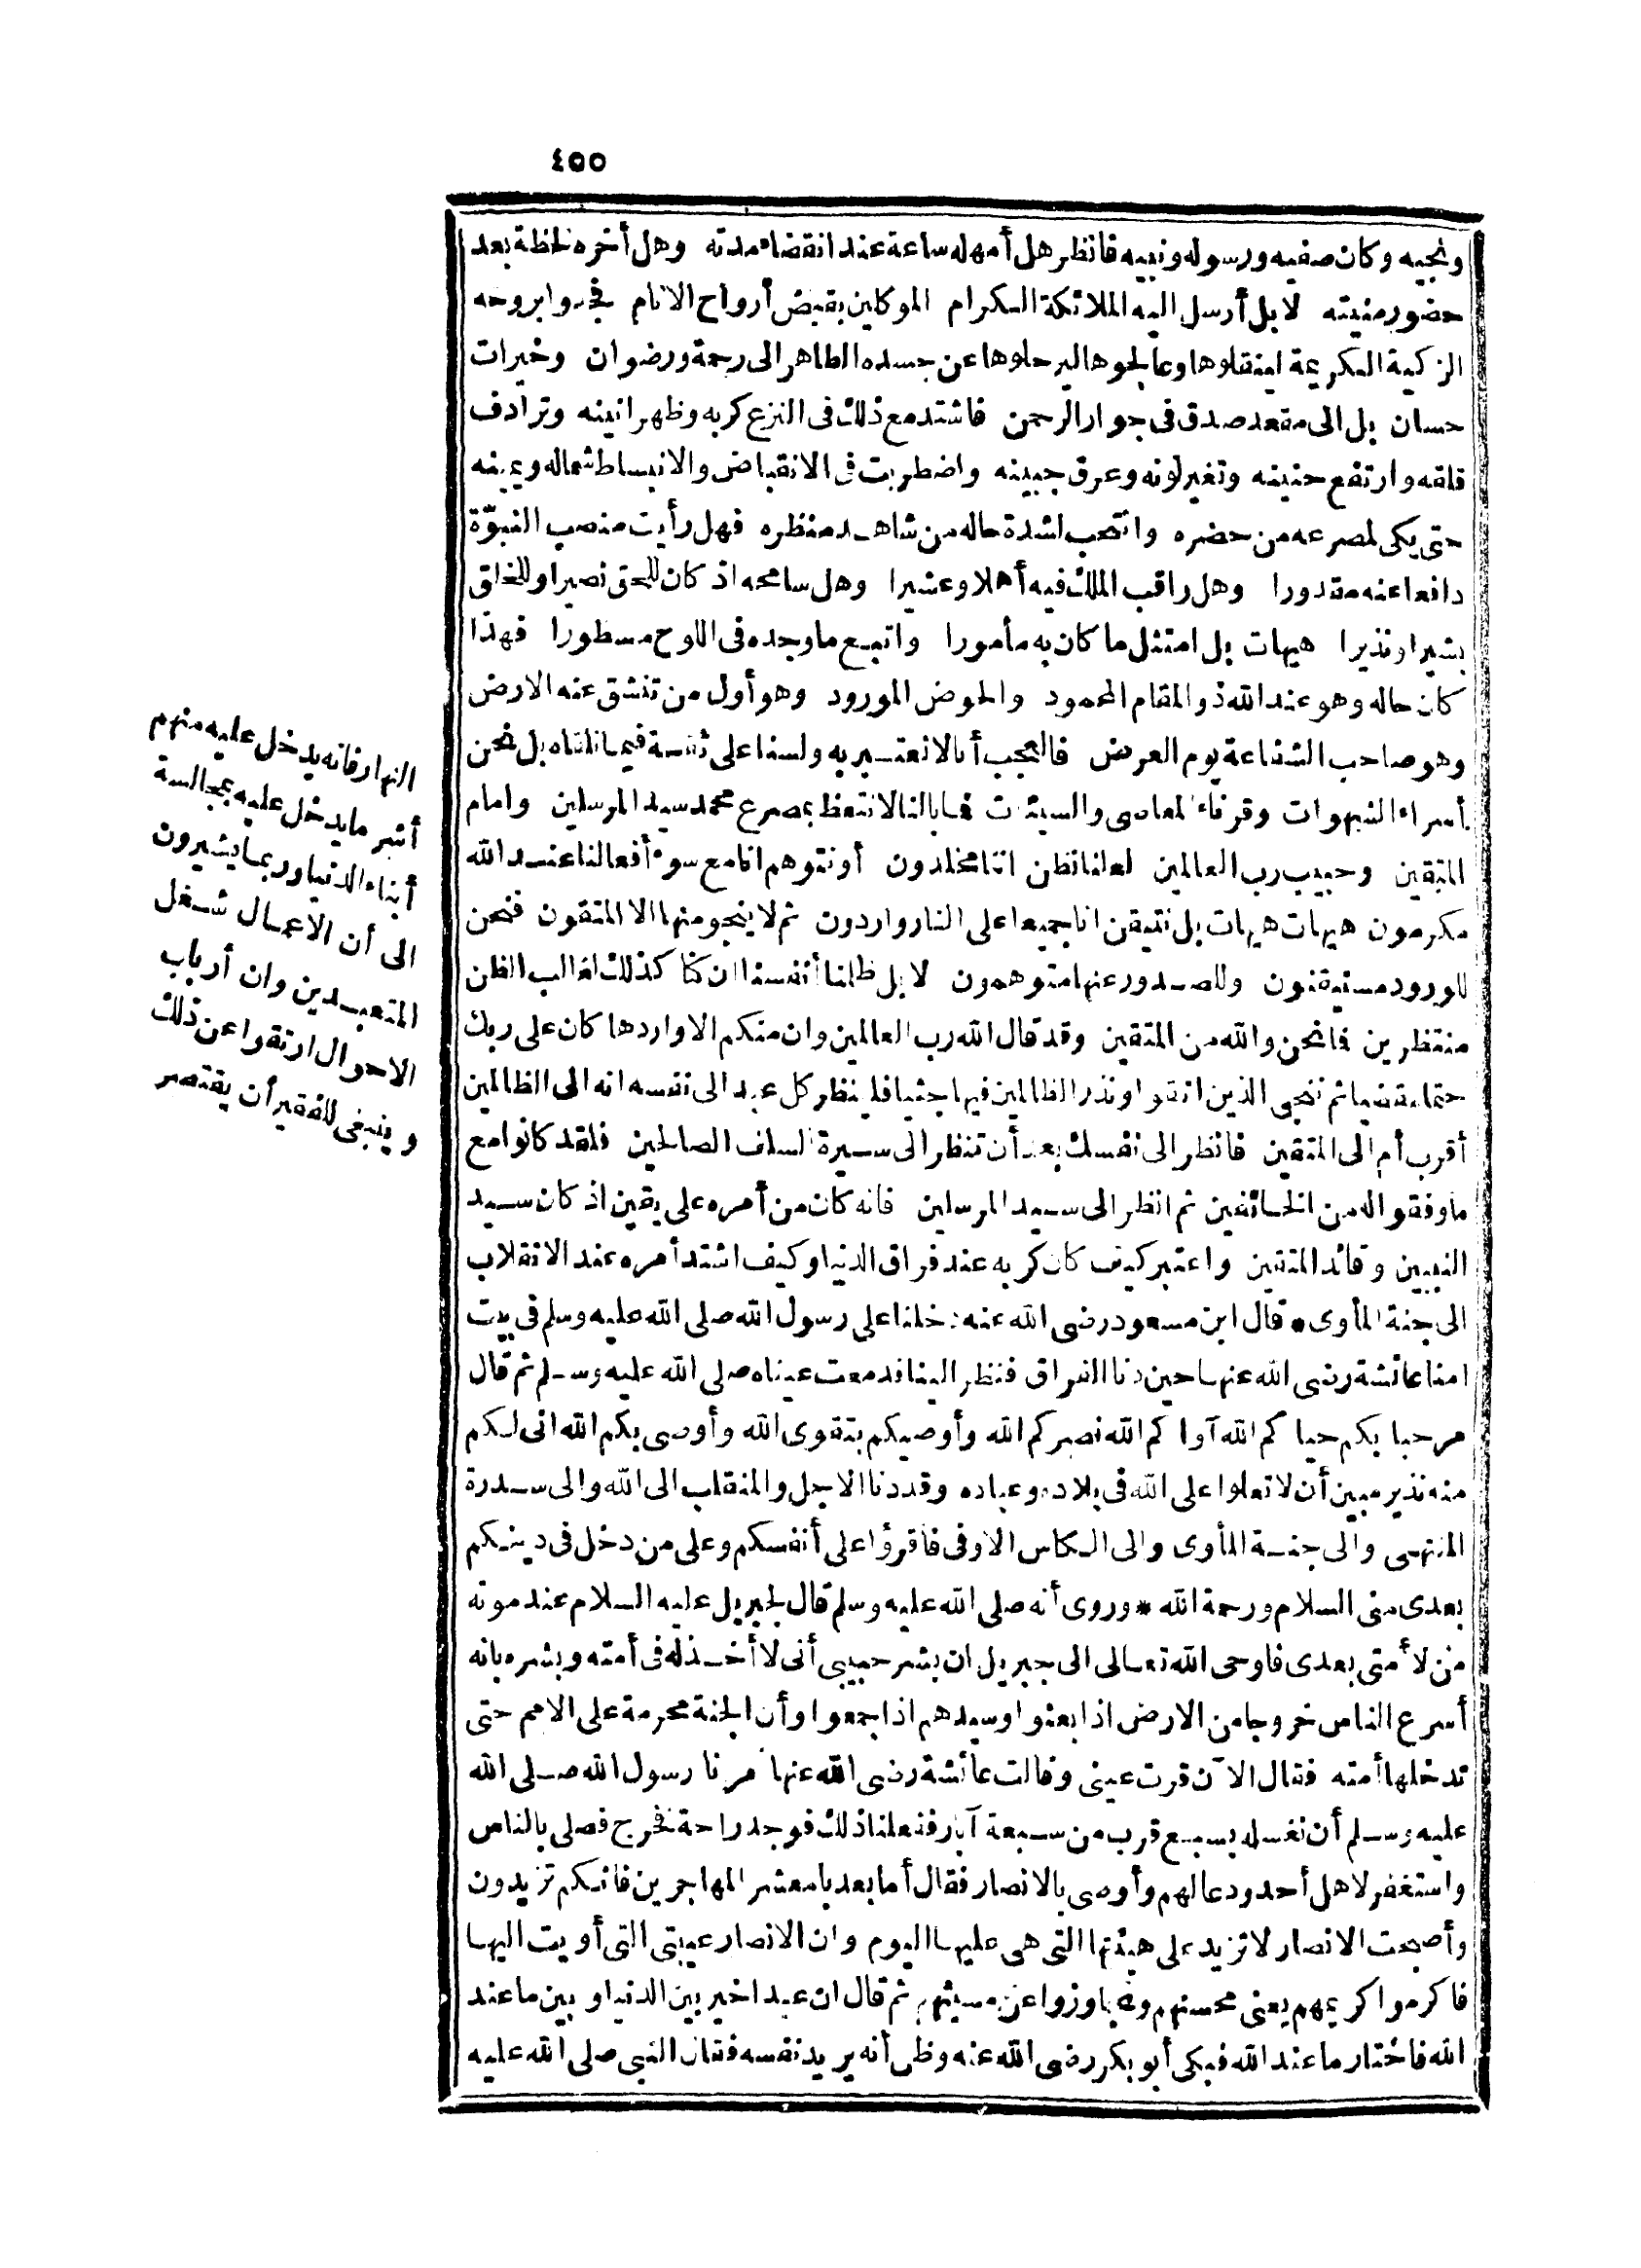 ٤٥٥
ونجيه وكان صفيه ورسوله ونبيه فانظر هل أمهله ساعة عند انقضاء مدته وهل أخره لحظة بعد
حضور منيته لا بل أرسل اليه الملائكة الكرام الموكلين بقبض أرواح الانام فجدوا بروحه
الزكية الكريمة لينقلوها وعالجوها ليرحلوها عن جسده الطاهر الى رحمة ورضوان وخيرات
حسان بل الى مقعد صدق فى جوار الرحمن فاشتد مع ذلك فى النزع كربه وظهر انينه وترادف
قلقه وارتفع حنينه وتغير لونه وعرق جبينه واضطربت فى الانقباض والانبساط شماله ويمينه
حتى بكى لمصرعه من حضره وانتحب لشدة حاله من شاهد منظره فهل رأيت منصب النبوّة
دافعا عنه مقدورا وهل راقب الملك فيه أهلا وعشيرا وهل سامحه اذ كان للحق نصيرا وللخلق
بشيرا ونذيرا هيهات بل امتثل ما كان به مأمورا واتبع ما وجده فى اللوح مسطورا فهذا
كان حاله وهو عند الله ذو المقام المحمود والحوض المورود وهو أول من تنشق عنه الارض
وهو صاحب الشفاعة يوم العرض فالعجب أنا لا نعتبر به ولسنا على ثقة فيما نلقاه بل نحن
أسراء الشهوات وقرناء المعاصى والسيئات فما بالنا لا نتعظ بمصرع محمد سيد المرسلين وامام
المتقين وحبيب رب العالمين لعلنا نظن اننا مخلدون أو نتوهم انا مع سوء أفعالنا عند الله
مكرمون هيهات هيهات بل نتيقن انا جميعا على النار واردون ثم لا ينجو منها الا المتقون فنحن
للورود مستيقنون وللصدور عنها متوهمون لا بل ظلمنا أنفسنا ان كنا كذلك لغالب الظن
منتظرين فما نحن والله من المتقين وقد قال الله رب العالمين وان منكم الا واردها كان على ربك
حتما مقضيا ثم ننجى الذين اتقوا ونذر الظالمين فيها جثيا فلينظر كل عبد الى نفسه انه الى الظالمين
أقرب أم الى المتقين فانظر الى نفسك بعد أن تنظر الى سيرة السلف الصالحين فلقد كانوا مع
ما وفقوا له من الخائفين ثم انظر الى سيد المرسلين فانه كان من أمره على يقين اذ كان سيد
النبيين وقائد المتقين واعتبر كيف كان كربه عند فراق الدنيا وكيف اشتد أمره عند الانقلاب
الى جنة المأوى * قال ابن مسعود رضى الله عنه دخلنا على رسول الله صلى الله عليه وسلم فى بيت
امنا عائشة رضى الله عنها حين دنا الفراق فنظر الينا فدمعت عيناه صلى الله عليه وسلم ثم قال
مرحبا بكم حياكم الله آواكم الله نصركم الله وأوصيكم بتقوى الله وأوصى بكم الله انى لكم
منه نذير مبين أن لا تعلوا على الله فى بلاده وعباده وقد دنا الاجل والمنقلب الى الله والى سدرة
المنتهى والى جنة المأوى والى الكاس الاوفى فاقرؤا على أنفسكم وعلى من دخل فى دينكم
بعدى منى السلام ورحمة الله * وروى أنه صلى الله عليه وسلم قال لجبريل عليه السلام عند موته
من لأمتى بعدى فاوحى الله تعالى الى جبريل ان بشر حبيبى أنى لا أخذله فى أمته وبشره بانه
أسرع الناس خروجا من الارض اذا بعثوا وسيدهم اذا جمعوا وأن الجنة محرمة على الامم حتى
تدخلها أمته فقال الآن قرت عينى وقالت عائشة رضى الله عنها أمرنا رسول الله صلى الله
عليه وسلم أن نغسله بسبع قرب من سبعة آبار ففعلنا ذلك فوجد راحة فخرج فصلى بالناس
واستغفر لاهل أحد ودعا لهم وأوصى بالانصار فقال أما بعد يا معشر المهاجرين فانكم تزيدون
وأصبحت الانصار لا تزيد على هيئتها التى هى عليها اليوم وان الانصار عيبتى التى أويت اليها
فاكرموا كريمهم يعنى محسنهم وتجاوزوا عن مسيئهم ثم قال ان عبدا خير بين الدنيا وبين ما عند
الله فاختار ما عند الله فبكى أبو بكر رضى الله عنه وظن أنه يريد نفسه فقال النبى صلى الله عليه
النهار فانه يدخل عليه منهم
أشر ما يدخل عليه بمجالسة
أبناء الدنيا وربما يشيرون
الى أن الاعمال شغل
المتعبدين وان أرباب
الاحوال ارتقوا عن ذلك
وينبغى للفقير أن يقتصر